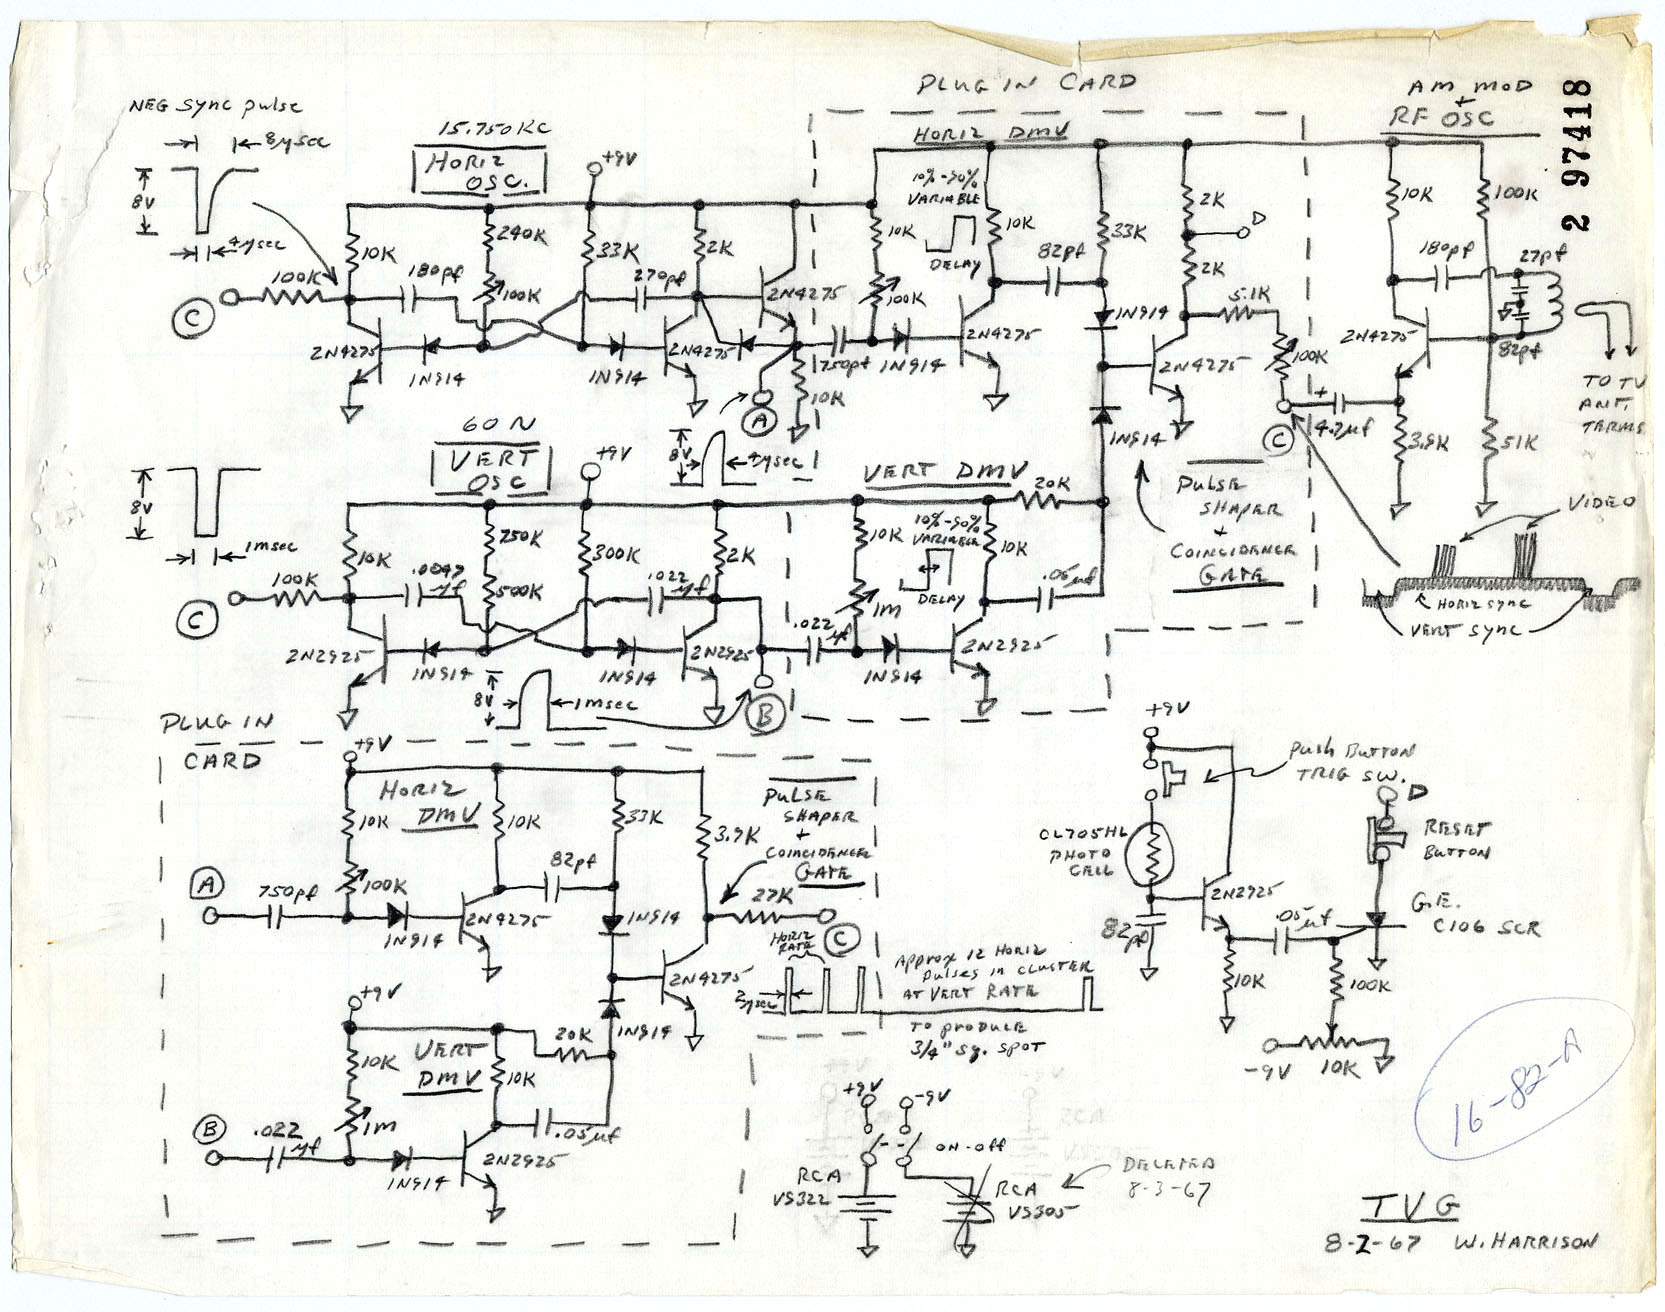 PLUG IN CARD
AM MOD
+
RF OSC
2 97418
NEG SYNC PULSE
8μsec
8V
4μsec
15.750KC
HORIZ
OSC.
+9V
HORIZ DMV
10%-90%
VARIABLE
DELAY
10K
240K
33K
2K
10K
10K
82pf
33K
2K
D
2K
10K
100K
180pf
27pf
100K
180pf
100K
270pf
2N4275
100K
1N914
5.1K
C
2N4275
1N914
1N914
2N4275
750pf
1N914
2N4275
2N4275
100K
2N4275
82pf
10K
A
TO TV
ANT.
TERMS
60N
VERT
OSC
+9V
8V
4μsec
1N914
C
+
4.7μf
3.9K
51K
VERT DMV
20K
PULSE
SHAPER
+
COINCIDENCE
GATE
VIDEO
HORIZ SYNC
VERT SYNC
8V
1msec
10K
750K
300K
2K
10K
10%-90%
VARIABLE
DELAY
10K
100K
.0047
μf
500K
.022
μf
1M
.05μf
C
2N2925
1N914
1N914
2N2925
.022
μf
1N914
2N2925
8V
1msec
B
PLUG IN
CARD
+9V
HORIZ
DMV
10K
10K
33K
3.9K
PULSE
SHAPER
+
COINCIDENCE
GATE
82pf
A
750pf
100K
1N914
2N4275
1N914
27K
C
HORIZ
RATE
2μsec
2N4275
1N914
APPROX 12 HORIZ
PULSES IN CLUSTER
AT VERT RATE
TO PRODUCE
3/4" SQ. SPOT
+9V
VERT
DMV
10K
10K
20K
B
.022
μf
1M
1N914
2N2925
.05μf
+9V
PUSH BUTTON
TRIG SW.
D
RESET
BUTTON
CL705HL
PHOTO
CELL
2N2925
82pf
.05μf
G.E.
C106 SCR
10K
100K
-9V
10K
16-82-A
+9V
-9V
ON-OFF
RCA
VS322
RCA
VS305
DELETED
8-3-67
TVG
8-2-67 W. HARRISON